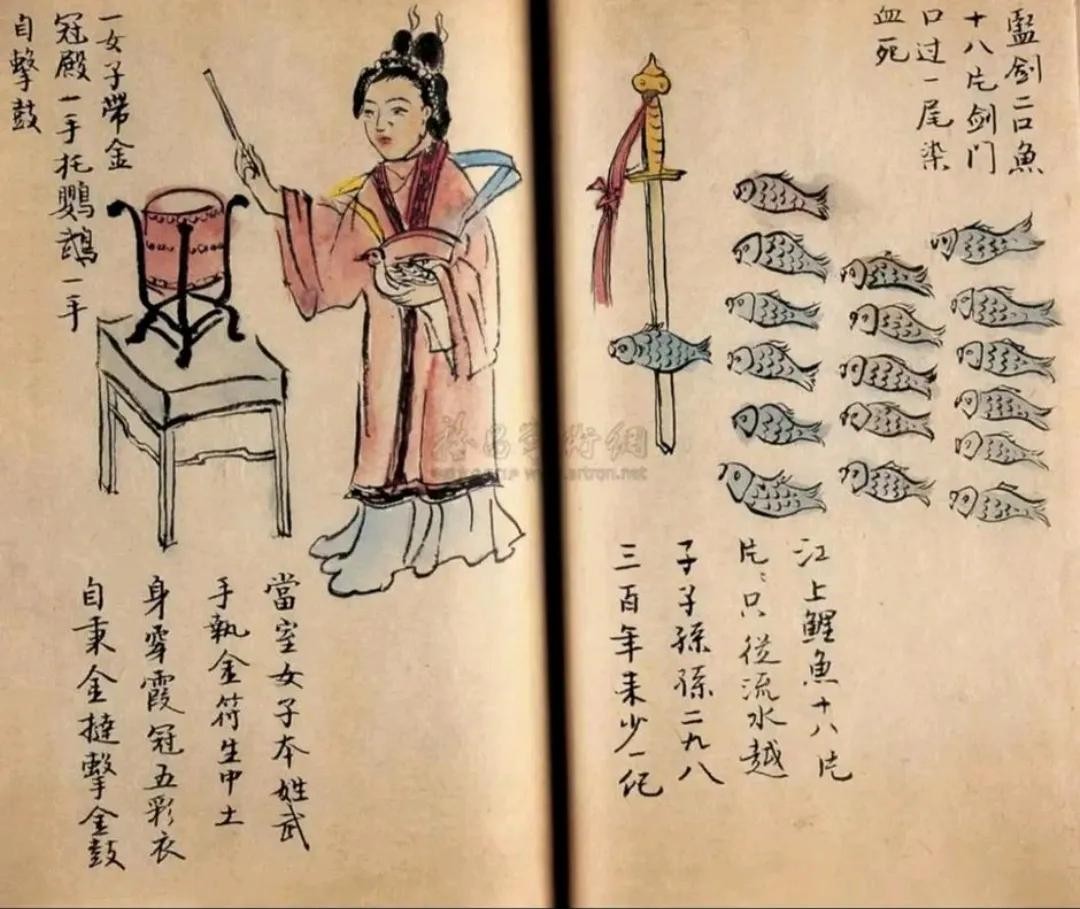 剑二口魚
十八片剑门
口过一尾染
血死
江上鯉魚十八片
片〻只從流水越
子子孫孫二九八
三百年来少一
一女子帶金
冠殿一手托鸚鵡一手
自擊鼓
當室女子本姓武
手執金符生中土
身穿霞冠五彩衣
自秉金撻擊金鼓
artron.net